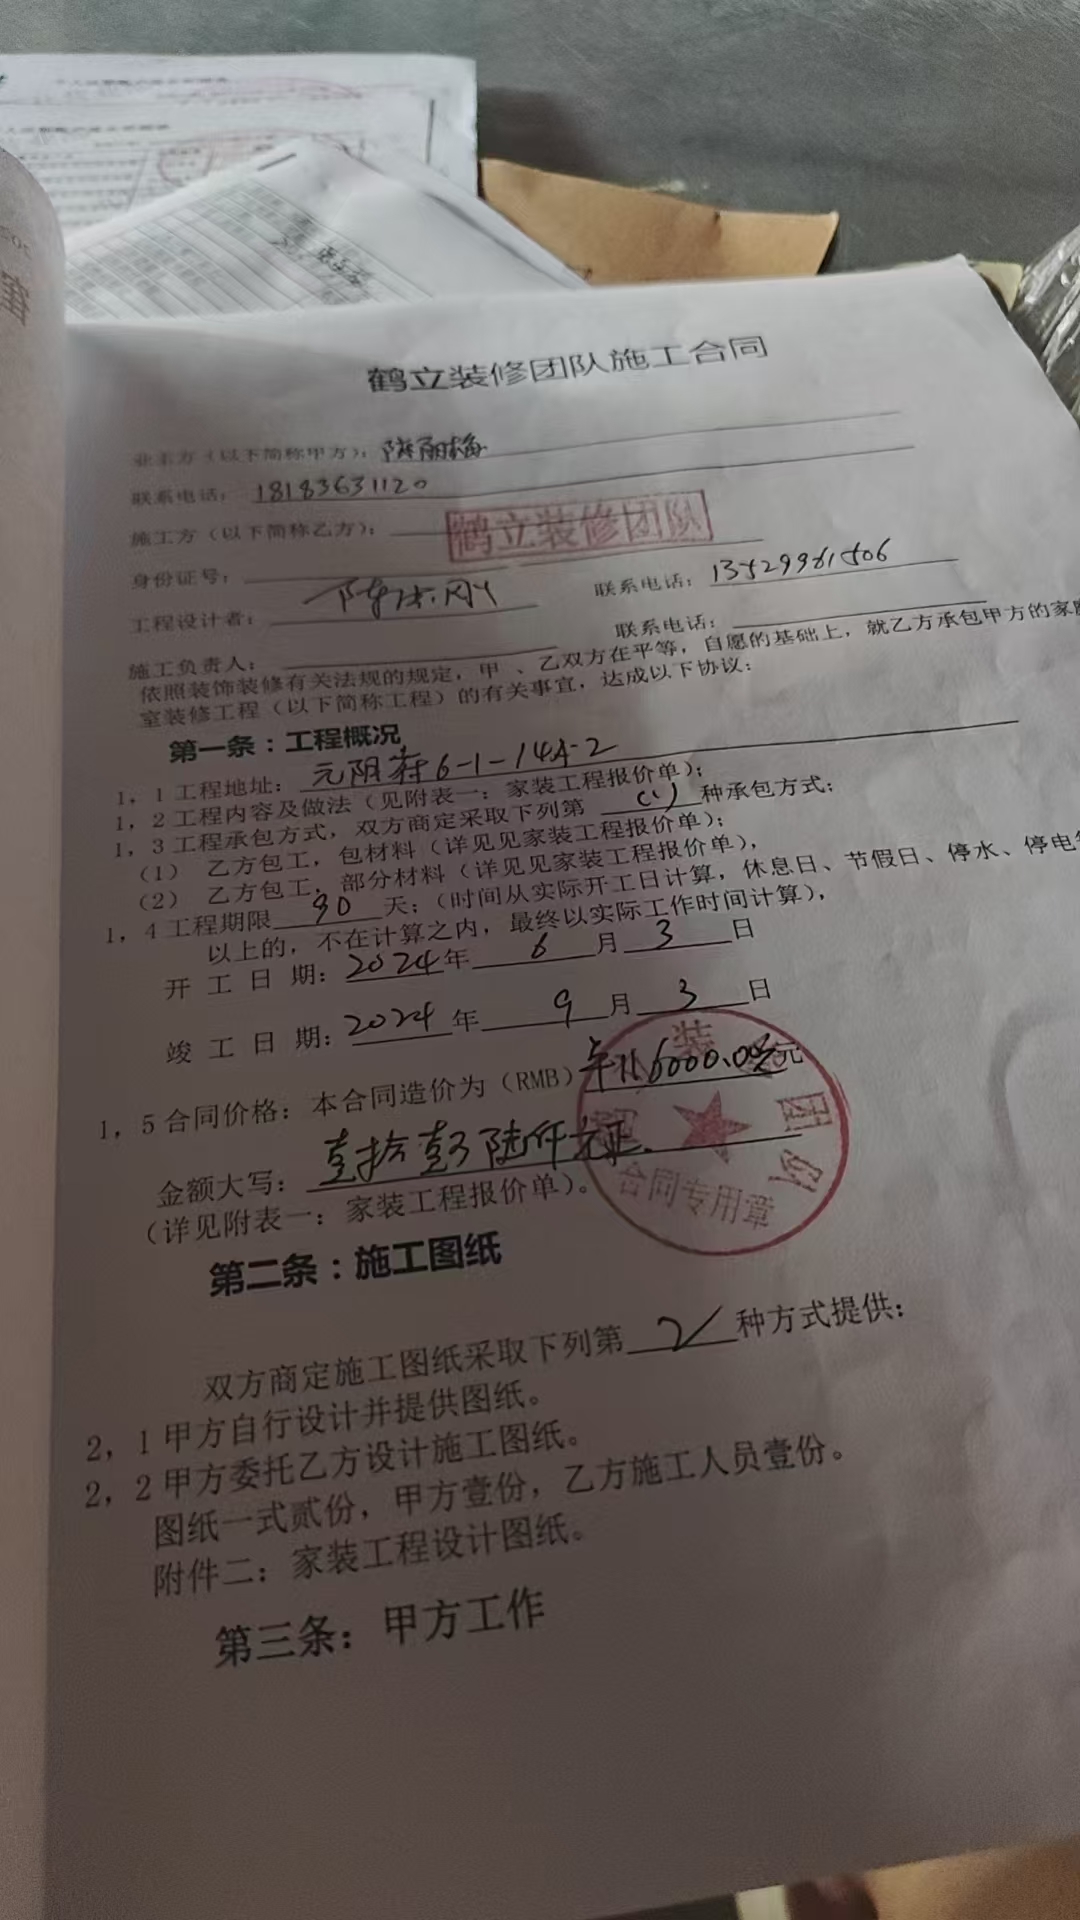 鹤立装修团队施工合同
业主方（以下简称甲方）：陈丽梅
联系电话：18183631120
施工方（以下简称乙方）：鹤立装修团队
身份证号：
联系电话：13529961506
工程设计者：
联系电话：
施工负责人：
依照装饰装修有关法规的规定，甲、乙双方在平等，自愿的基础上，就乙方承包甲方的家
室装修工程（以下简称工程）的有关事宜，达成以下协议：
第一条：工程概况
1，1工程地址：元阴 6-1-14A-2
1，2工程内容及做法（见附表一：家装工程报价单）；
1，3工程承包方式，双方商定采取下列第 (1) 种承包方式；
（1） 乙方包工，包材料（详见见家装工程报价单）；
（2） 乙方包工，部分材料（详见见家装工程报价单），
1，4工程期限 90 天；（时间从实际开工日计算，休息日、节假日、停水、停电
以上的，不在计算之内，最终以实际工作时间计算），
开 工 日 期：2024年 6 月 3 日
竣 工 日 期：2024年 9 月 3 日
1，5合同价格：本合同造价为（RMB）116000.00元
金额大写：壹拾壹万陆仟元正
（详见附表一：家装工程报价单）。
装 团队
合同专用章
第二条：施工图纸
双方商定施工图纸采取下列第 2 种方式提供：
2，1甲方自行设计并提供图纸。
2，2甲方委托乙方设计施工图纸。
图纸一式贰份，甲方壹份，乙方施工人员壹份。
附件二：家装工程设计图纸。
第三条：甲方工作